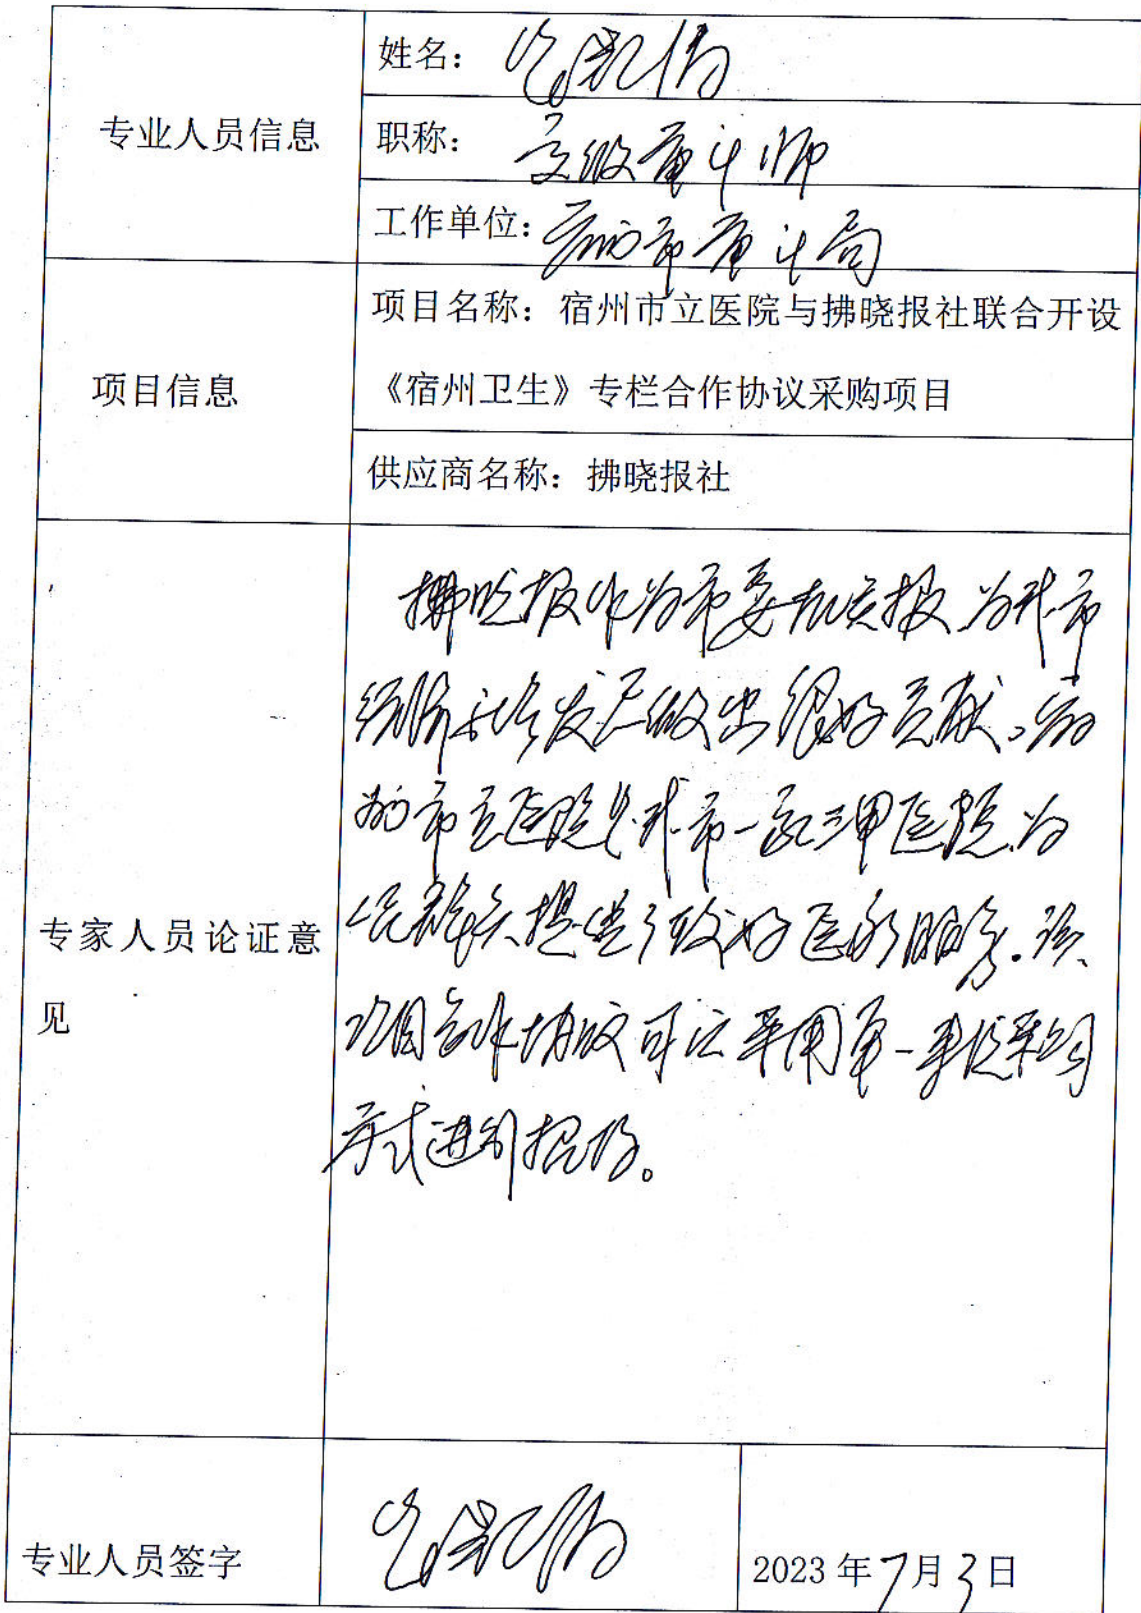 专业人员信息
姓名：
职称：高级审计师
工作单位：宿州市审计局
项目信息
项目名称：宿州市立医院与拂晓报社联合开设
《宿州卫生》专栏合作协议采购项目
供应商名称：拂晓报社
专家人员论证意
见
拂晓报作为市委机关报，为我市
经济社会发展做出很好贡献。宿
州市立医院是我市一家三甲医院，为
人民群众提供了较好医疗服务。该
项目合作协议可以采用单一来源采购
方式进行招标。
专业人员签字
2023年7月3日